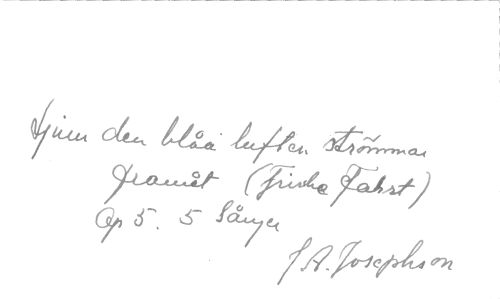 Ljum den blåa luften strömmar
framåt (Frische Fahrt)
Op 5. 5 Sånger
J A. Josephson